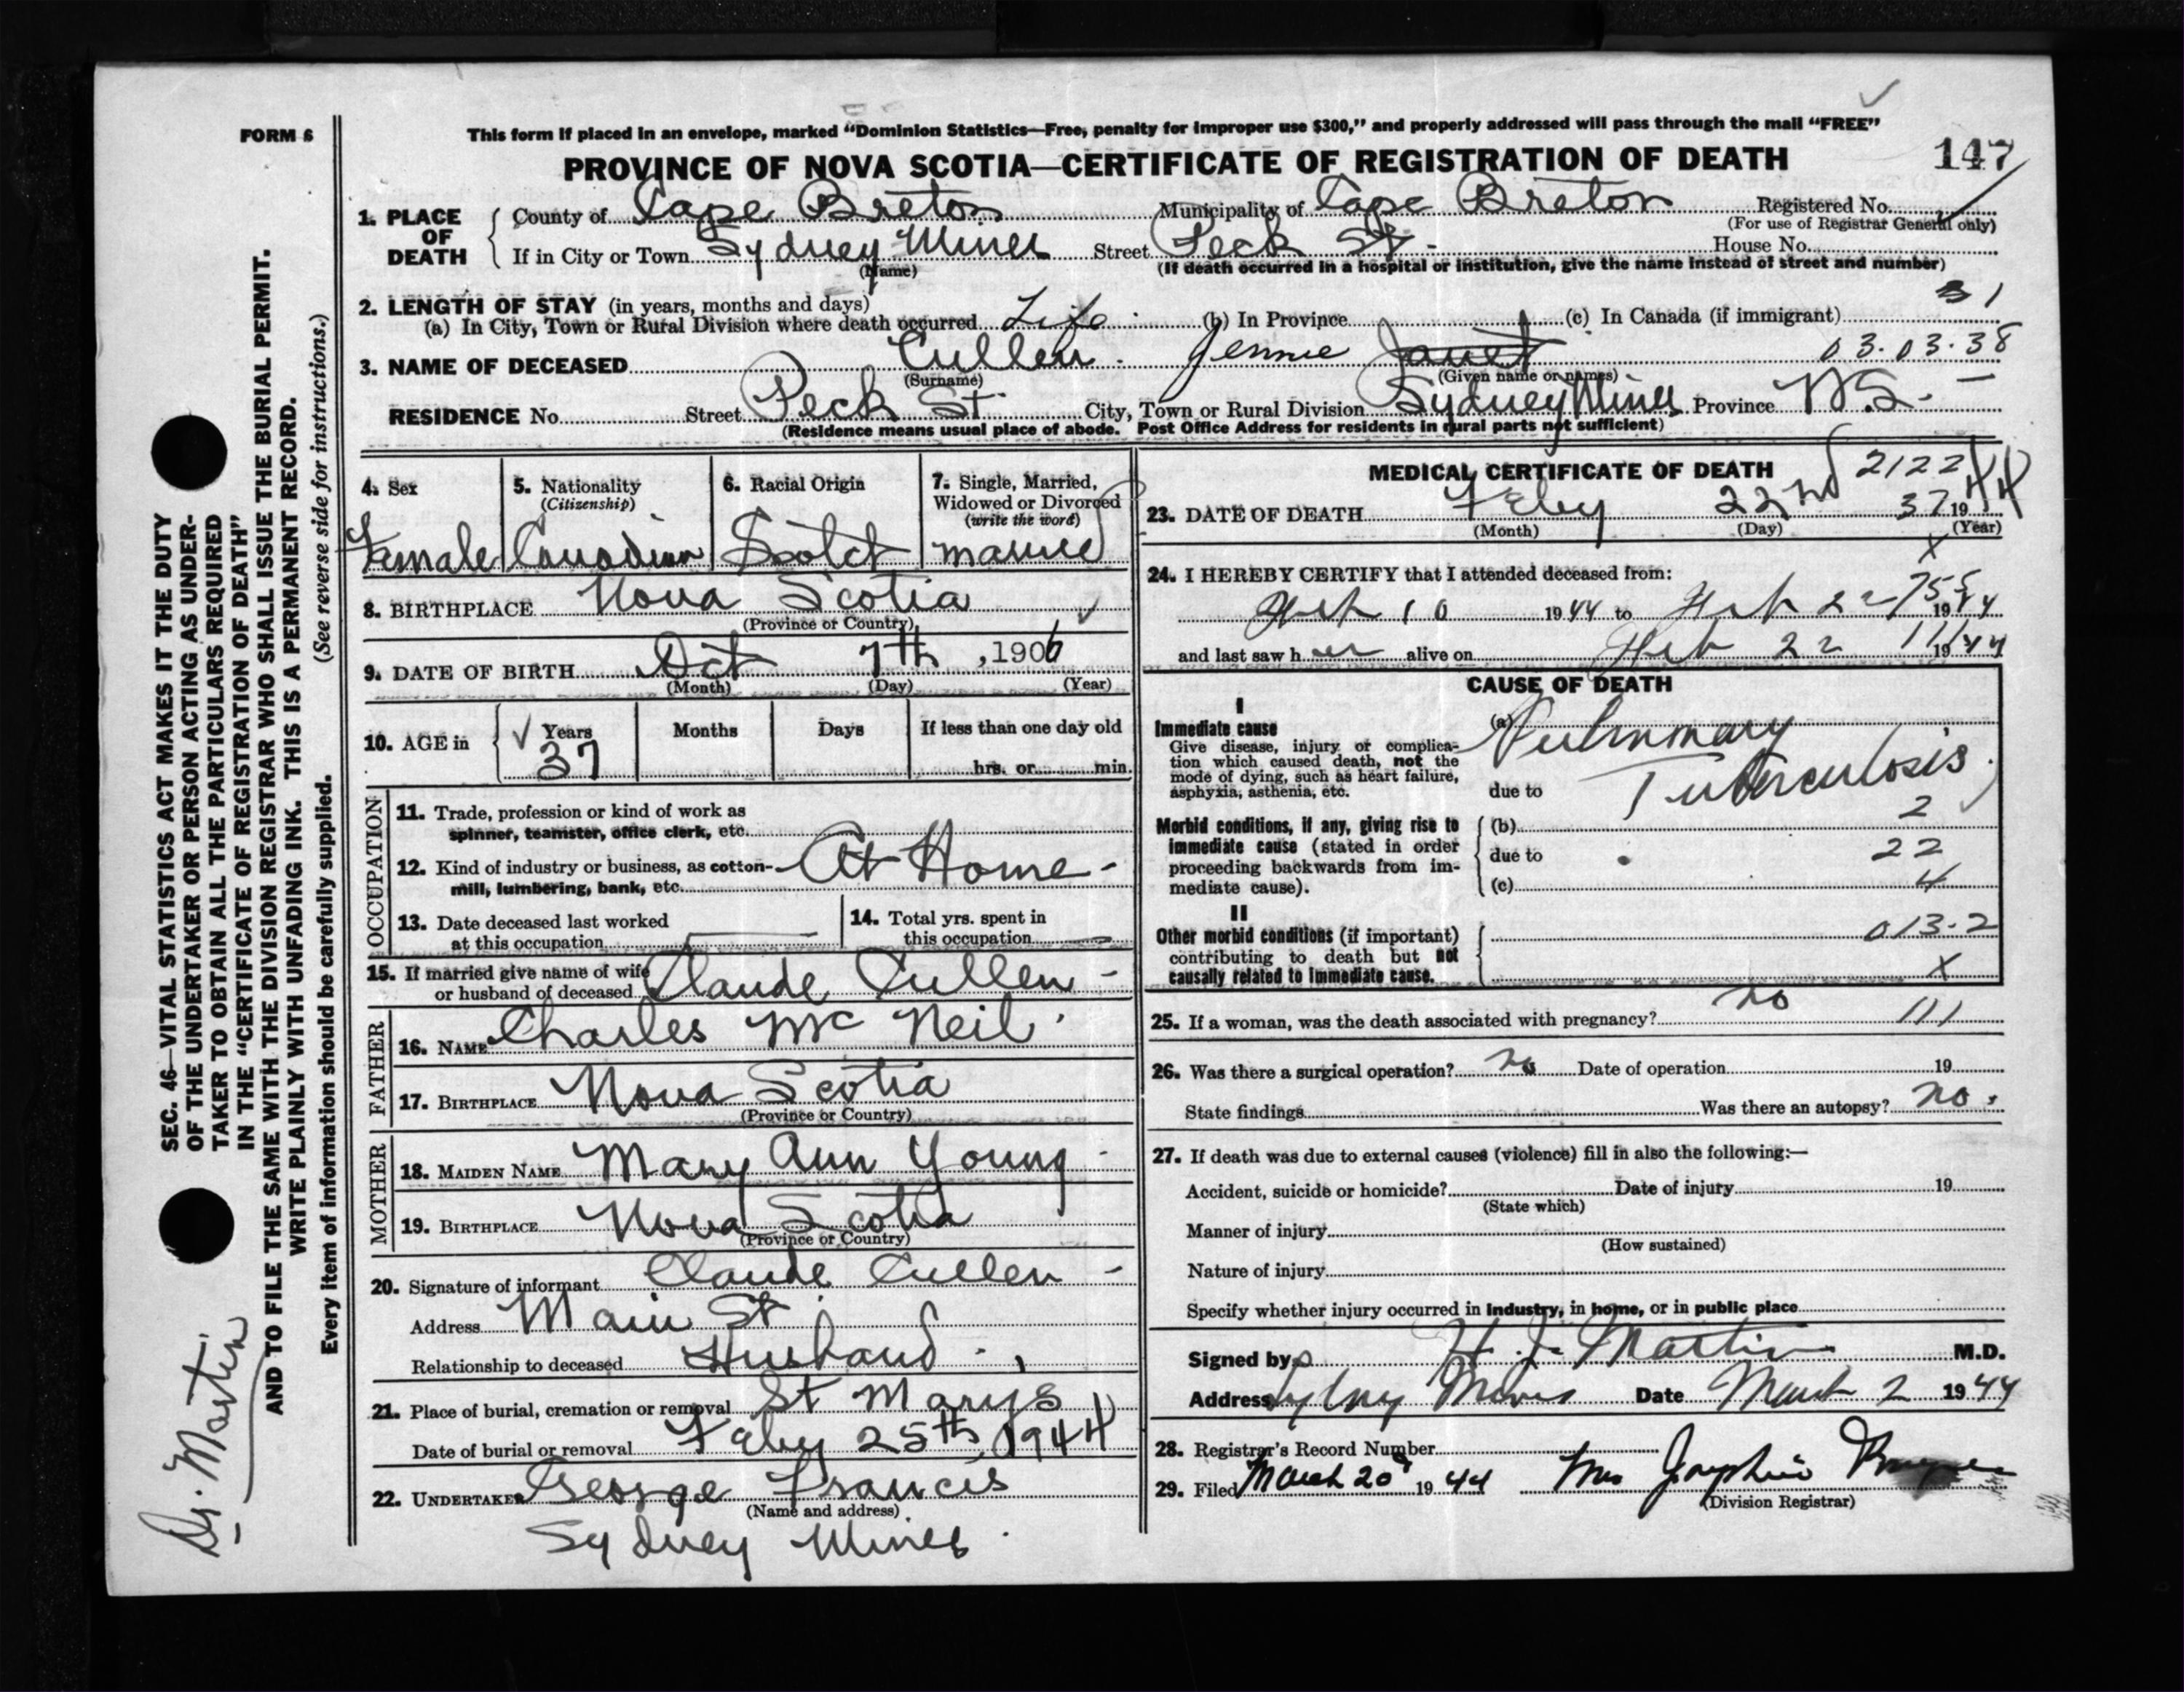 FORM 6
This form if placed in an envelope, marked "Dominion Statistics—Free, penalty for improper use $300," and properly addressed will pass through the mail "FREE"
PROVINCE OF NOVA SCOTIA—CERTIFICATE OF REGISTRATION OF DEATH
147
1. PLACE OF DEATH
County of Cape Breton Municipality of Cape Breton Registered No.
(For use of Registrar General only)
If in City or Town Sydney Mines Street Peck St - House No.
(Name) (If death occurred in a hospital or institution, give the name instead of street and number)
2. LENGTH OF STAY (in years, months and days) 31
(a) In City, Town or Rural Division where death occurred Life (b) In Province (c) In Canada (if immigrant)
3. NAME OF DECEASED Cullen. Jennie Janet 03.03.38
(Surname) (Given name or names)
RESIDENCE No. Street Peck St. City, Town or Rural Division Sydney Mines Province N.S. -
(Residence means usual place of abode. Post Office Address for residents in rural parts not sufficient)
4. Sex
Female
5. Nationality
(Citizenship)
Canadian
6. Racial Origin
Scotch
7. Single, Married, Widowed or Divorced
(write the word)
married
8. BIRTHPLACE Nova Scotia
(Province or Country)
9. DATE OF BIRTH Oct 7th, 1906
(Month) (Day) (Year)
10. AGE in
Years Months Days If less than one day old
37 hrs. or min.
OCCUPATION
11. Trade, profession or kind of work as spinner, teamster, office clerk, etc.
12. Kind of industry or business, as cotton-mill, lumbering, bank, etc. At Home -
13. Date deceased last worked at this occupation
14. Total yrs. spent in this occupation
15. If married give name of wife or husband of deceased Claude Cullen -
FATHER
16. NAME Charles Mc Neil
17. BIRTHPLACE Nova Scotia
(Province or Country)
MOTHER
18. MAIDEN NAME Mary Ann Young
19. BIRTHPLACE Nova Scotia
(Province or Country)
20. Signature of informant Claude Cullen -
Address Main St
Relationship to deceased Husband
21. Place of burial, cremation or removal St Mary's
Date of burial or removal Feby 25th, 1944
22. UNDERTAKER George Francis
(Name and address)
Sydney Mines
MEDICAL CERTIFICATE OF DEATH 2122
23. DATE OF DEATH Feby 22nd 37 1944
(Month) (Day) (Year)
X
24. I HEREBY CERTIFY that I attended deceased from:
Feb 10 1944 to Feb 22 1944
and last saw her alive on Feb 22 1944
CAUSE OF DEATH
I
Immediate cause
Give disease, injury or complication which caused death, not the mode of dying, such as heart failure, asphyxia, asthenia, etc.
(a) Pulmonary
due to Tuberculosis
Morbid conditions, if any, giving rise to immediate cause (stated in order proceeding backwards from immediate cause).
(b) 2
due to 22
(c) 4
II
Other morbid conditions (if important) contributing to death but not causally related to immediate cause.
013.2
X
25. If a woman, was the death associated with pregnancy? no 111
26. Was there a surgical operation? no Date of operation 19
State findings Was there an autopsy? no.
27. If death was due to external causes (violence) fill in also the following:—
Accident, suicide or homicide? Date of injury 19
(State which)
Manner of injury
(How sustained)
Nature of injury
Specify whether injury occurred in industry, in home, or in public place
Signed by H. J. Martin M.D.
Address Sydney Mines Date March 2 1944
28. Registrar's Record Number
29. Filed March 20 1944 Mrs Josephine
(Division Registrar)
SEC. 46—VITAL STATISTICS ACT MAKES IT THE DUTY
OF THE UNDERTAKER OR PERSON ACTING AS UNDER-
TAKER TO OBTAIN ALL THE PARTICULARS REQUIRED
IN THE "CERTIFICATE OF REGISTRATION OF DEATH"
AND TO FILE THE SAME WITH THE DIVISION REGISTRAR WHO SHALL ISSUE THE BURIAL PERMIT.
WRITE PLAINLY WITH UNFADING INK. THIS IS A PERMANENT RECORD.
(See reverse side for instructions.)
Every item of information should be carefully supplied.
Dr. Martin